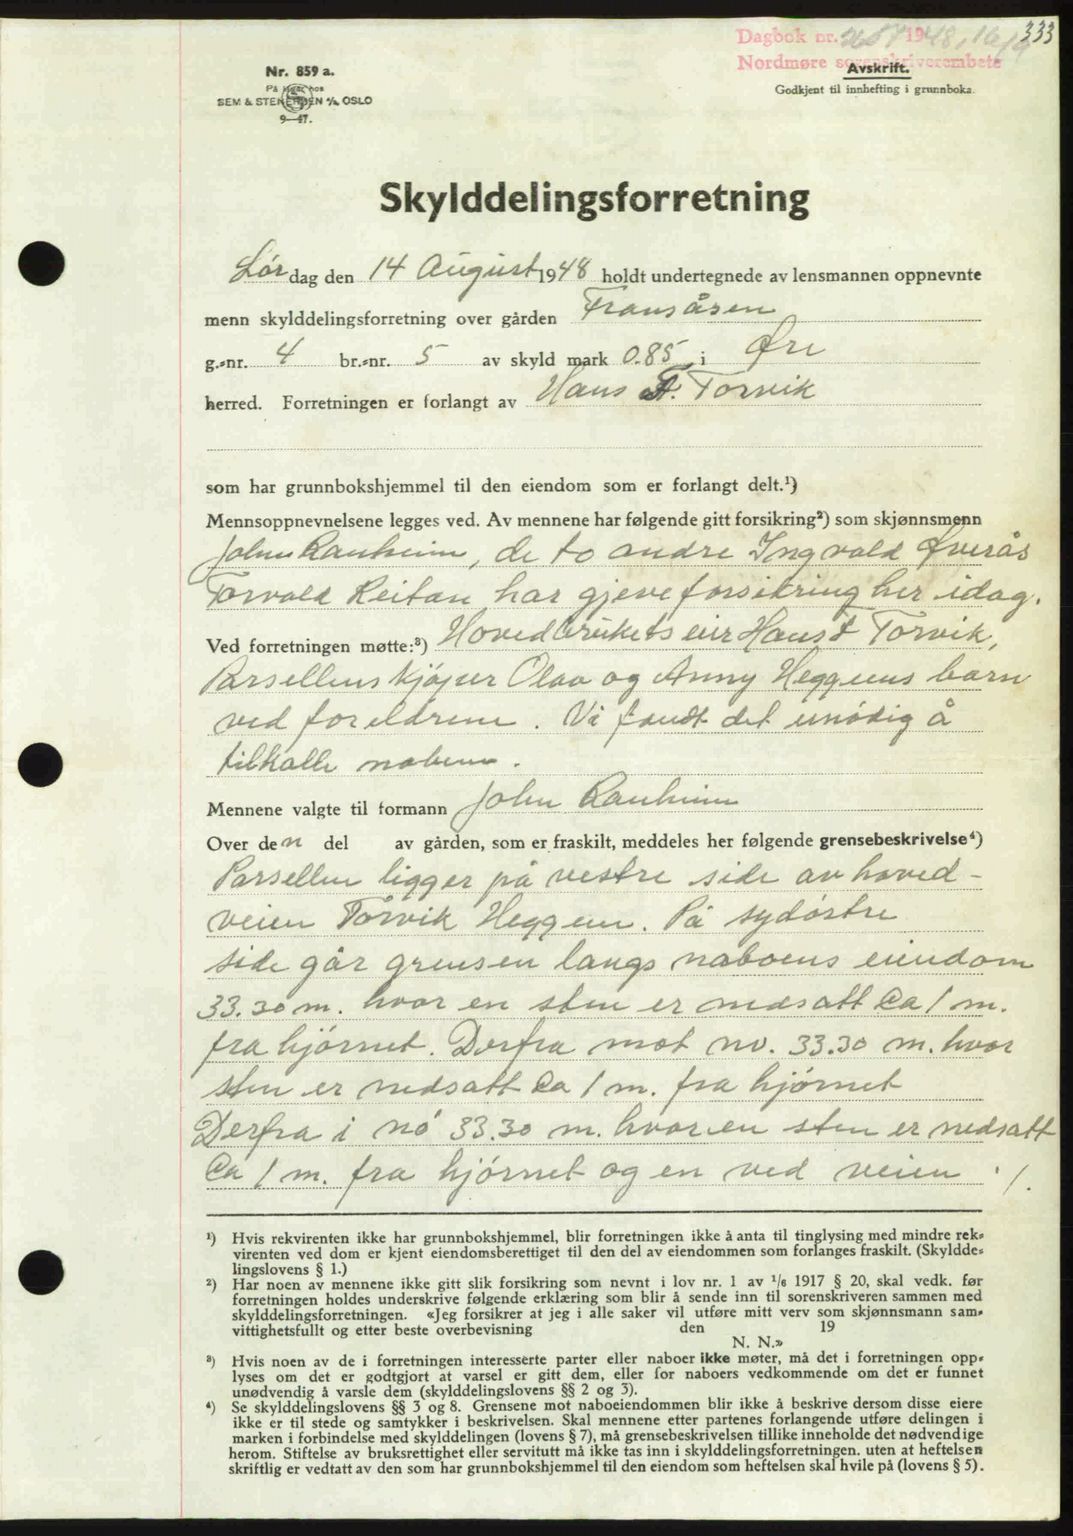 333
Dagbok nr. 2057 1948, 16/9
Nordmøre sorenskriverembete
Avskrift.
Godkjent til innhefting i grunnboka.
Nr. 859 a.
På lager hos
SEM & STENERSEN A/S, OSLO
9—47.
Skylddelingsforretning
Lørdag den 14 August 1948 holdt undertegnede av lensmannen oppnevnte
menn skylddelingsforretning over gården Fransåsen
g.-nr. 4 br.-nr. 5 av skyld mark 0.85 i Øre
herred. Forretningen er forlangt av Hans T. Torvik
som har grunnbokshjemmel til den eiendom som er forlangt delt.¹)
Mennsoppnevnelsene legges ved. Av mennene har følgende gitt forsikring²) som skjønnsmenn
John Ranheim, de to andre Ingvald Øverås
Torvald Reitan har gjeve forsikring her idag.
Ved forretningen møtte:³) Hovedbrukets eier Hans T Torvik,
Parsellens kjøper Olav og Anny Heggems barn
ved foreldrene. Vi fandt det unødig å
tilkalle naboen.
Mennene valgte til formann John Ranheim
Over den del av gården, som er fraskilt, meddeles her følgende grensebeskrivelse⁴)
Parsellen ligger på vestre side av hoved-
veien Torvik Heggem. På sydøstre
side går grensen langs naboens eiendom
33.30 m. hvor en sten er nedsatt Ca 1 m.
fra hjørnet. Derfra mot nv. 33.30 m. hvor
sten er nedsatt Ca 1 m. fra hjørnet
Derfra i nó 33.30 m. hvor en sten er nedsatt
Ca 1 m. fra hjørnet og en ved veien ./.
¹) Hvis rekvirenten ikke har grunnbokshjemmel, blir forretningen ikke å anta til tinglysing med mindre rek-
virenten ved dom er kjent eiendomsberettiget til den del av eiendommen som forlanges fraskilt. (Skyldde-
lingslovens § 1.)
²) Har noen av mennene ikke gitt slik forsikring som nevnt i lov nr. 1 av 1/6 1917 § 20, skal vedk. før
forretningen holdes underskrive følgende erklæring som blir å sende inn til sorenskriveren sammen med
skylddelingsforretningen. «Jeg forsikrer at jeg i alle saker vil utføre mitt verv som skjønnsmann sam-
vittighetsfullt og etter beste overbevisning den 19
N. N.»
³) Hvis noen av de i forretningen interesserte parter eller naboer ikke møter, må det i forretningen opp-
lyses om det er godtgjort at varsel er gitt dem, eller for naboers vedkommende om det er funnet
unødvendig å varsle dem (skylddelingslovens §§ 2 og 3).
⁴) Se skylddelingslovens §§ 3 og 8. Grensene mot naboeiendommen blir ikke å beskrive dersom disse eiere
ikke er til stede og samtykker i beskrivelsen. Skal mennene etter partenes forlangende utføre delingen i
marken i forbindelse med skylddelingen (lovens § 7), må grensebeskrivelsen tillike inneholde det nødvendige
herom. Stiftelse av bruksrettighet eller servitutt må ikke tas inn i skylddelingsforretningen. uten at heftelsen
skriftlig er vedtatt av den som har grunnbokshjemmel til den eiendom som heftelsen skal hvile på (lovens § 5).